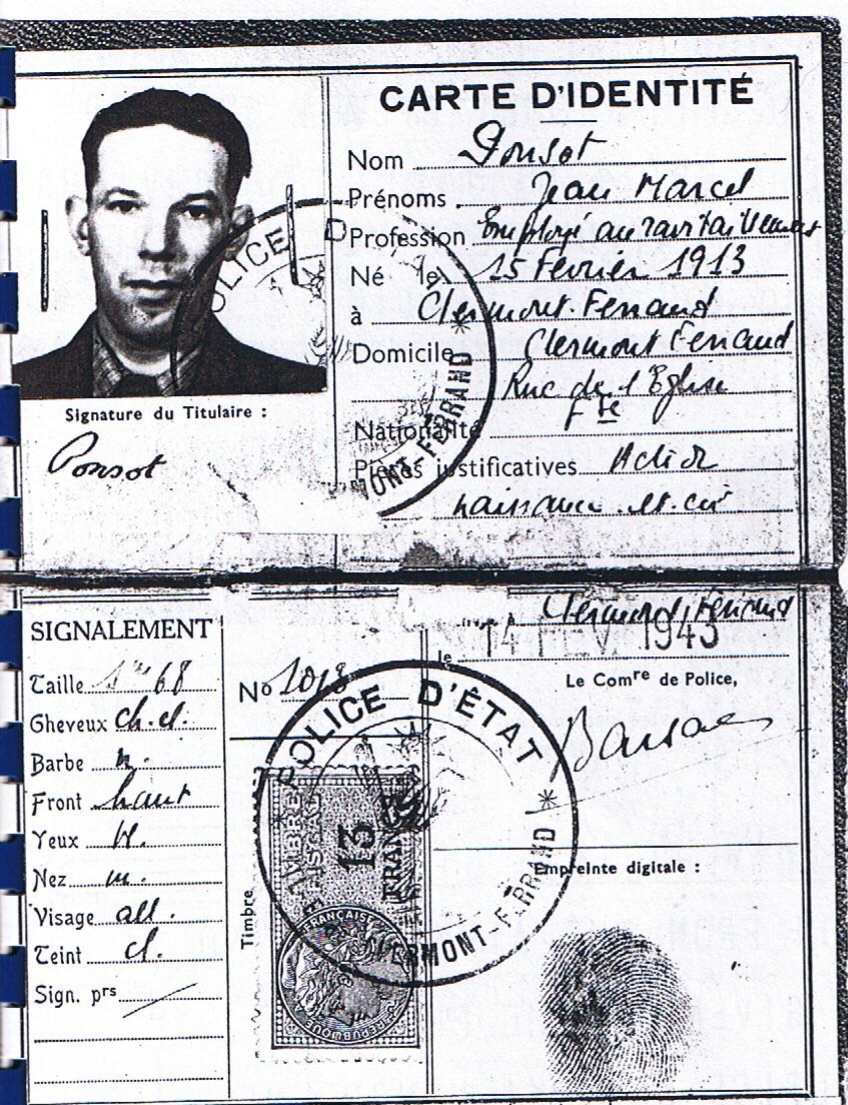 CARTE D'IDENTITÉ
Nom Ponsot
Prénoms Jean Marcel
Profession Employé au ravitaillement
Né le 15 Février 1913
à Clermont-Ferrand
Domicile Clermont Ferrand
Rue de l'Eglise
Nationalité Fse
Pièces justificatives
naissance et
POLICE D
MONT-FERRAND
Signature du Titulaire :
Ponsot
SIGNALEMENT
Taille 1m 68
Cheveux ch. cl.
Barbe n.
Front haut
Yeux
Nez m.
Visage all.
Teint cl.
Sign. prs
No 1018
Timbre
TIMBRE
FISCAL
13
FRANCS
FRANÇAISE
REPUBLIQUE
POLICE D'ÉTAT
CLERMONT-FERRAND
Clermont Ferrand
le 14 FEV. 1943
Le Comre de Police,
Empreinte digitale :